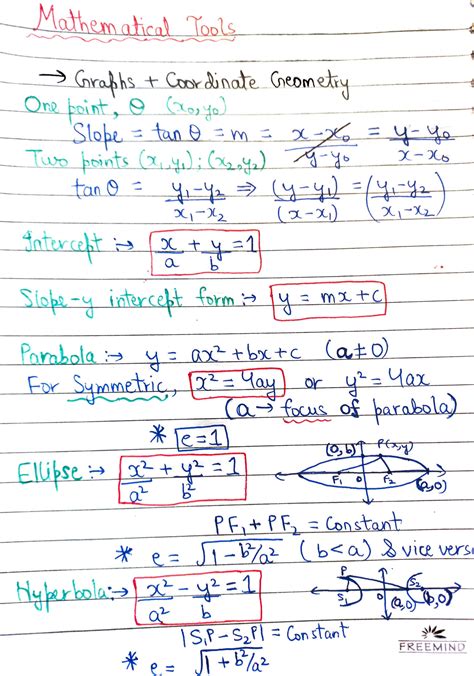 Mathematical Tools
→ Graphs + Coordinate Geometry
One point, θ (x₀, y₀)
Slope = tan θ = m = x-x₀/y-y₀ = y-y₀/x-x₀
Two points (x₁,y₁); (x₂,y₂)
tan θ = y₁-y₂/x₁-x₂ ⇒ (y-y₁)/(x-x₁) = (y₁-y₂/x₁-x₂)
Intercept :→ x/a + y/b = 1
Slope-y intercept form :→ y = mx+c
Parabola :→ y = ax²+bx+c (a≠0)
For Symmetric, x² = 4ay or y² = 4ax
(a → focus of parabola)
* e=1
(0,b) P(x,y)
Ellipse :→ x²/a² + y²/b² = 1
F₁ O F₂ (a,0)
PF₁ + PF₂ = Constant
* e = √1-b²/a² (b<a) & vice vers
Hyperbola :→ x²/a² - y²/b = 1
P S₁ O S₂ (a,0) (b,0)
|S₁P - S₂P| = Constant
* e = √1+b²/a²
FREEMIND